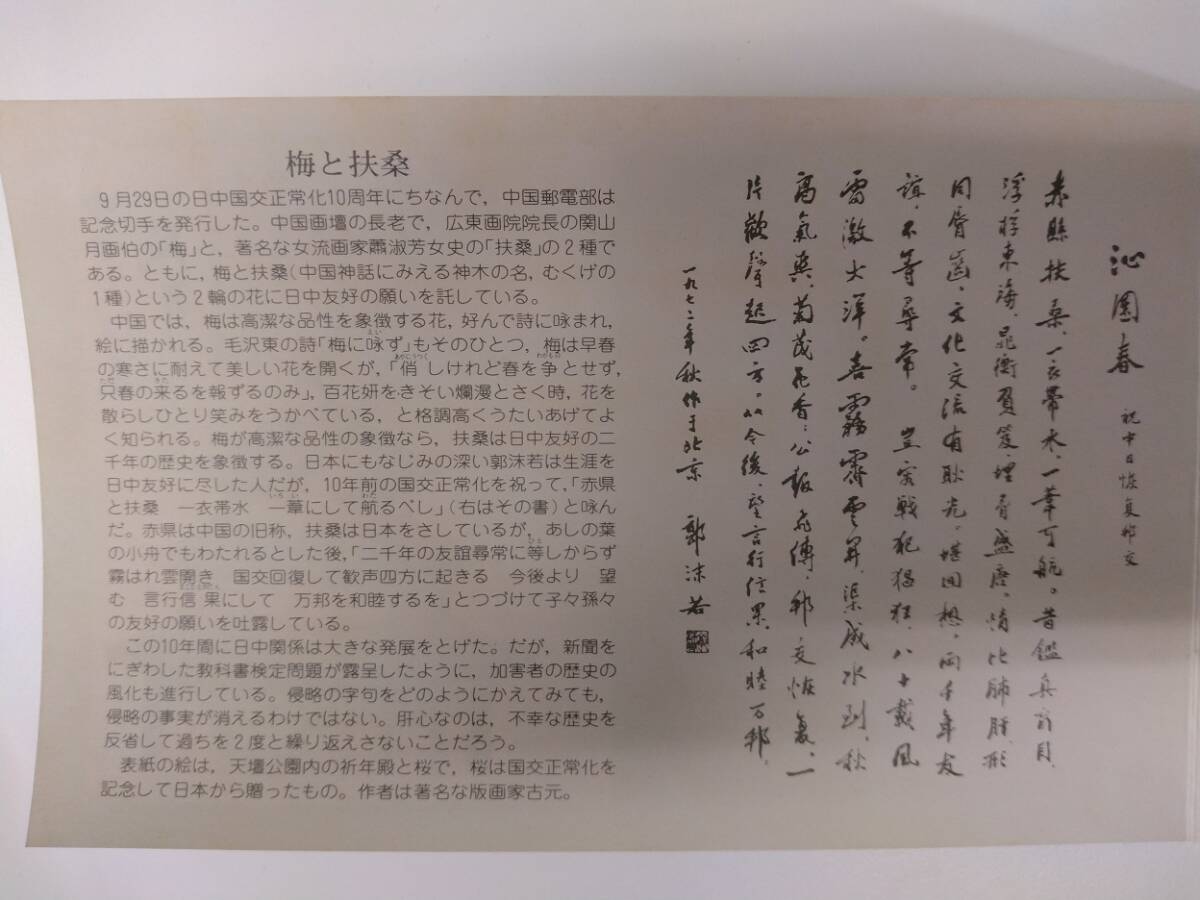 梅と扶桑
9月29日の日中国交正常化10周年にちなんで，中国郵電部は
記念切手を発行した。中国画壇の長老で，広東画院院長の関山
月画伯の「梅」と，著名な女流画家蕭淑芳女史の「扶桑」の2種で
ある。ともに，梅と扶桑（中国神話にみえる神木の名，むくげの
1種）という2輪の花に日中友好の願いを託している。
中国では，梅は高潔な品性を象徴する花，好んで詩に咏まれ，
絵に描かれる。毛沢東の詩「梅に咏ず」もそのひとつ，梅は早春
の寒さに耐えて美しい花を開くが，「俏しけれど春を争とせず，
只春の来るを報ずるのみ」，百花妍をきそい爛漫とさく時，花を
散らしひとり笑みをうかべている，と格調高くうたいあげてよ
く知られる。梅が高潔な品性の象徴なら，扶桑は日中友好の二
千年の歴史を象徴する。日本にもなじみの深い郭沫若は生涯を
日中友好に尽した人だが，10年前の国交正常化を祝って，「赤県
と扶桑　一衣帯水　一葦にして航るべし」（右はその書）と咏ん
だ。赤県は中国の旧称，扶桑は日本をさしているが，あしの葉
の小舟でもわたれるとした後，「二千年の友誼尋常に等しからず
霧はれ雲開き　国交回復して歓声四方に起きる　今後より　望
む　言行信果にして　万邦を和睦するを」とつづけて子々孫々
の友好の願いを吐露している。
この10年間に日中関係は大きな発展をとげた。だが，新聞を
にぎわした教科書検定問題が露呈したように，加害者の歴史の
風化も進行している。侵略の字句をどのようにかえてみても，
侵略の事実が消えるわけではない。肝心なのは，不幸な歴史を
反省して過ちを2度と繰り返えさないことだろう。
表紙の絵は，天壇公園内の祈年殿と桜で，桜は国交正常化を
記念して日本から贈ったもの。作者は著名な版画家古元。
沁園春　祝中日恢复邦交
赤縣扶桑、一衣帶水、一葦可航。昔鑑真盲目、
浮桴東海、晁衡負笈、埋骨盛唐。情比肺肝、形
同脣齒、文化交流有耿光。堪回想、兩千年友
誼、不等尋常。　豈容戰犯猖狂、八十載風
雷激大洋。喜霧霽雲昇、渠成水到、秋
高氣爽、菊茂花香；公報飛傳、邦交恢复、一
片歡聲起四方。从今後、望言行信果、和睦万邦。
一九七二年秋作于北京　郭沫若